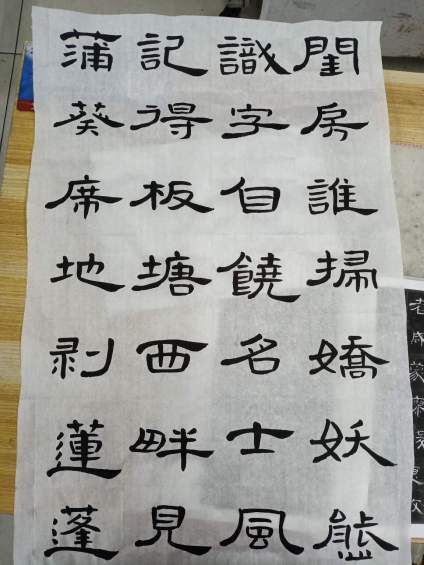 閨房誰掃嬌妖態
識字自饒名士風
記得板塘西畔見
蒲葵席地剥蓮蓬